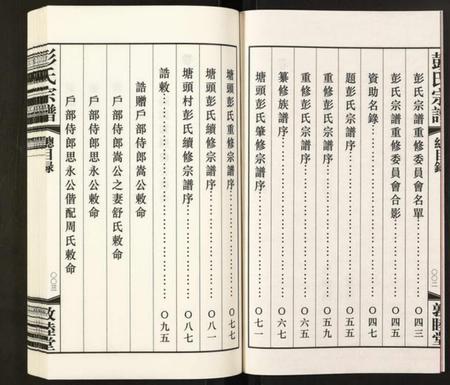 彭氏宗譜
總目錄
〇〇二
敦睦堂
彭氏宗譜重修委員會名單……〇四三
彭氏宗譜重修委員會合影……〇四五
資助名錄……〇四七
題彭氏宗譜序……〇五五
重修彭氏宗譜序……〇五九
纂修族譜序……〇六七
塘頭彭氏肇修宗譜序……〇七一
塘頭彭氏重修宗譜序……〇七七
塘頭彭氏續修宗譜序……〇八一
塘頭村彭氏續修宗譜序……〇八七
誥敕……〇九五
誥贈戶部侍郎嵩公敕命
戶部侍郎嵩公之妻舒氏敕命
戶部侍郎思永公敕命
戶部侍郎思永公偕配周氏敕命
彭氏宗譜
總目錄
〇〇三
敦睦堂